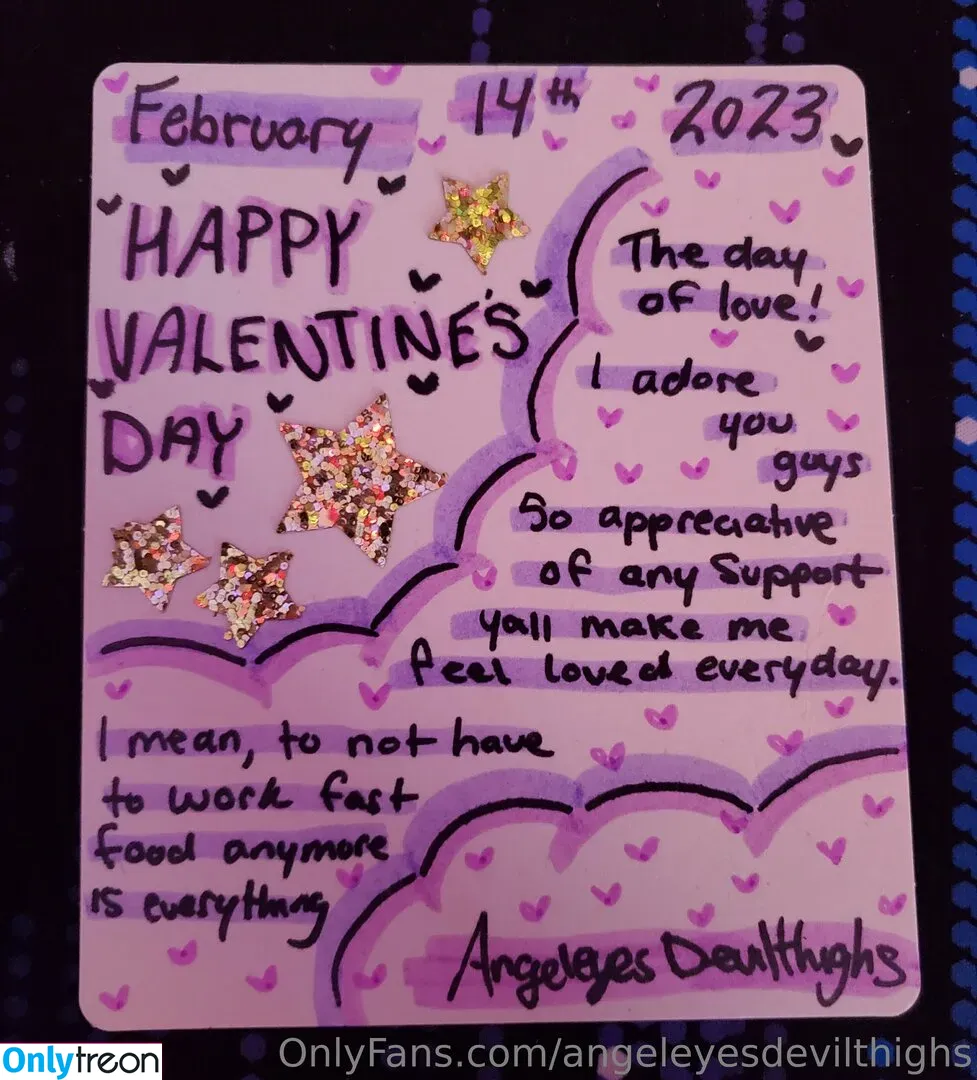 February 14th 2023
HAPPY
VALENTINE'S
DAY
The day
of love!
I adore
you
guys
So appreciative
of any Support
yall make me
feel loved everyday.
I mean, to not have
to work fast
food anymore
is everything
Angeleyes Devilthighs
Onlytreon
OnlyFans.com/angeleyesdevilthighs